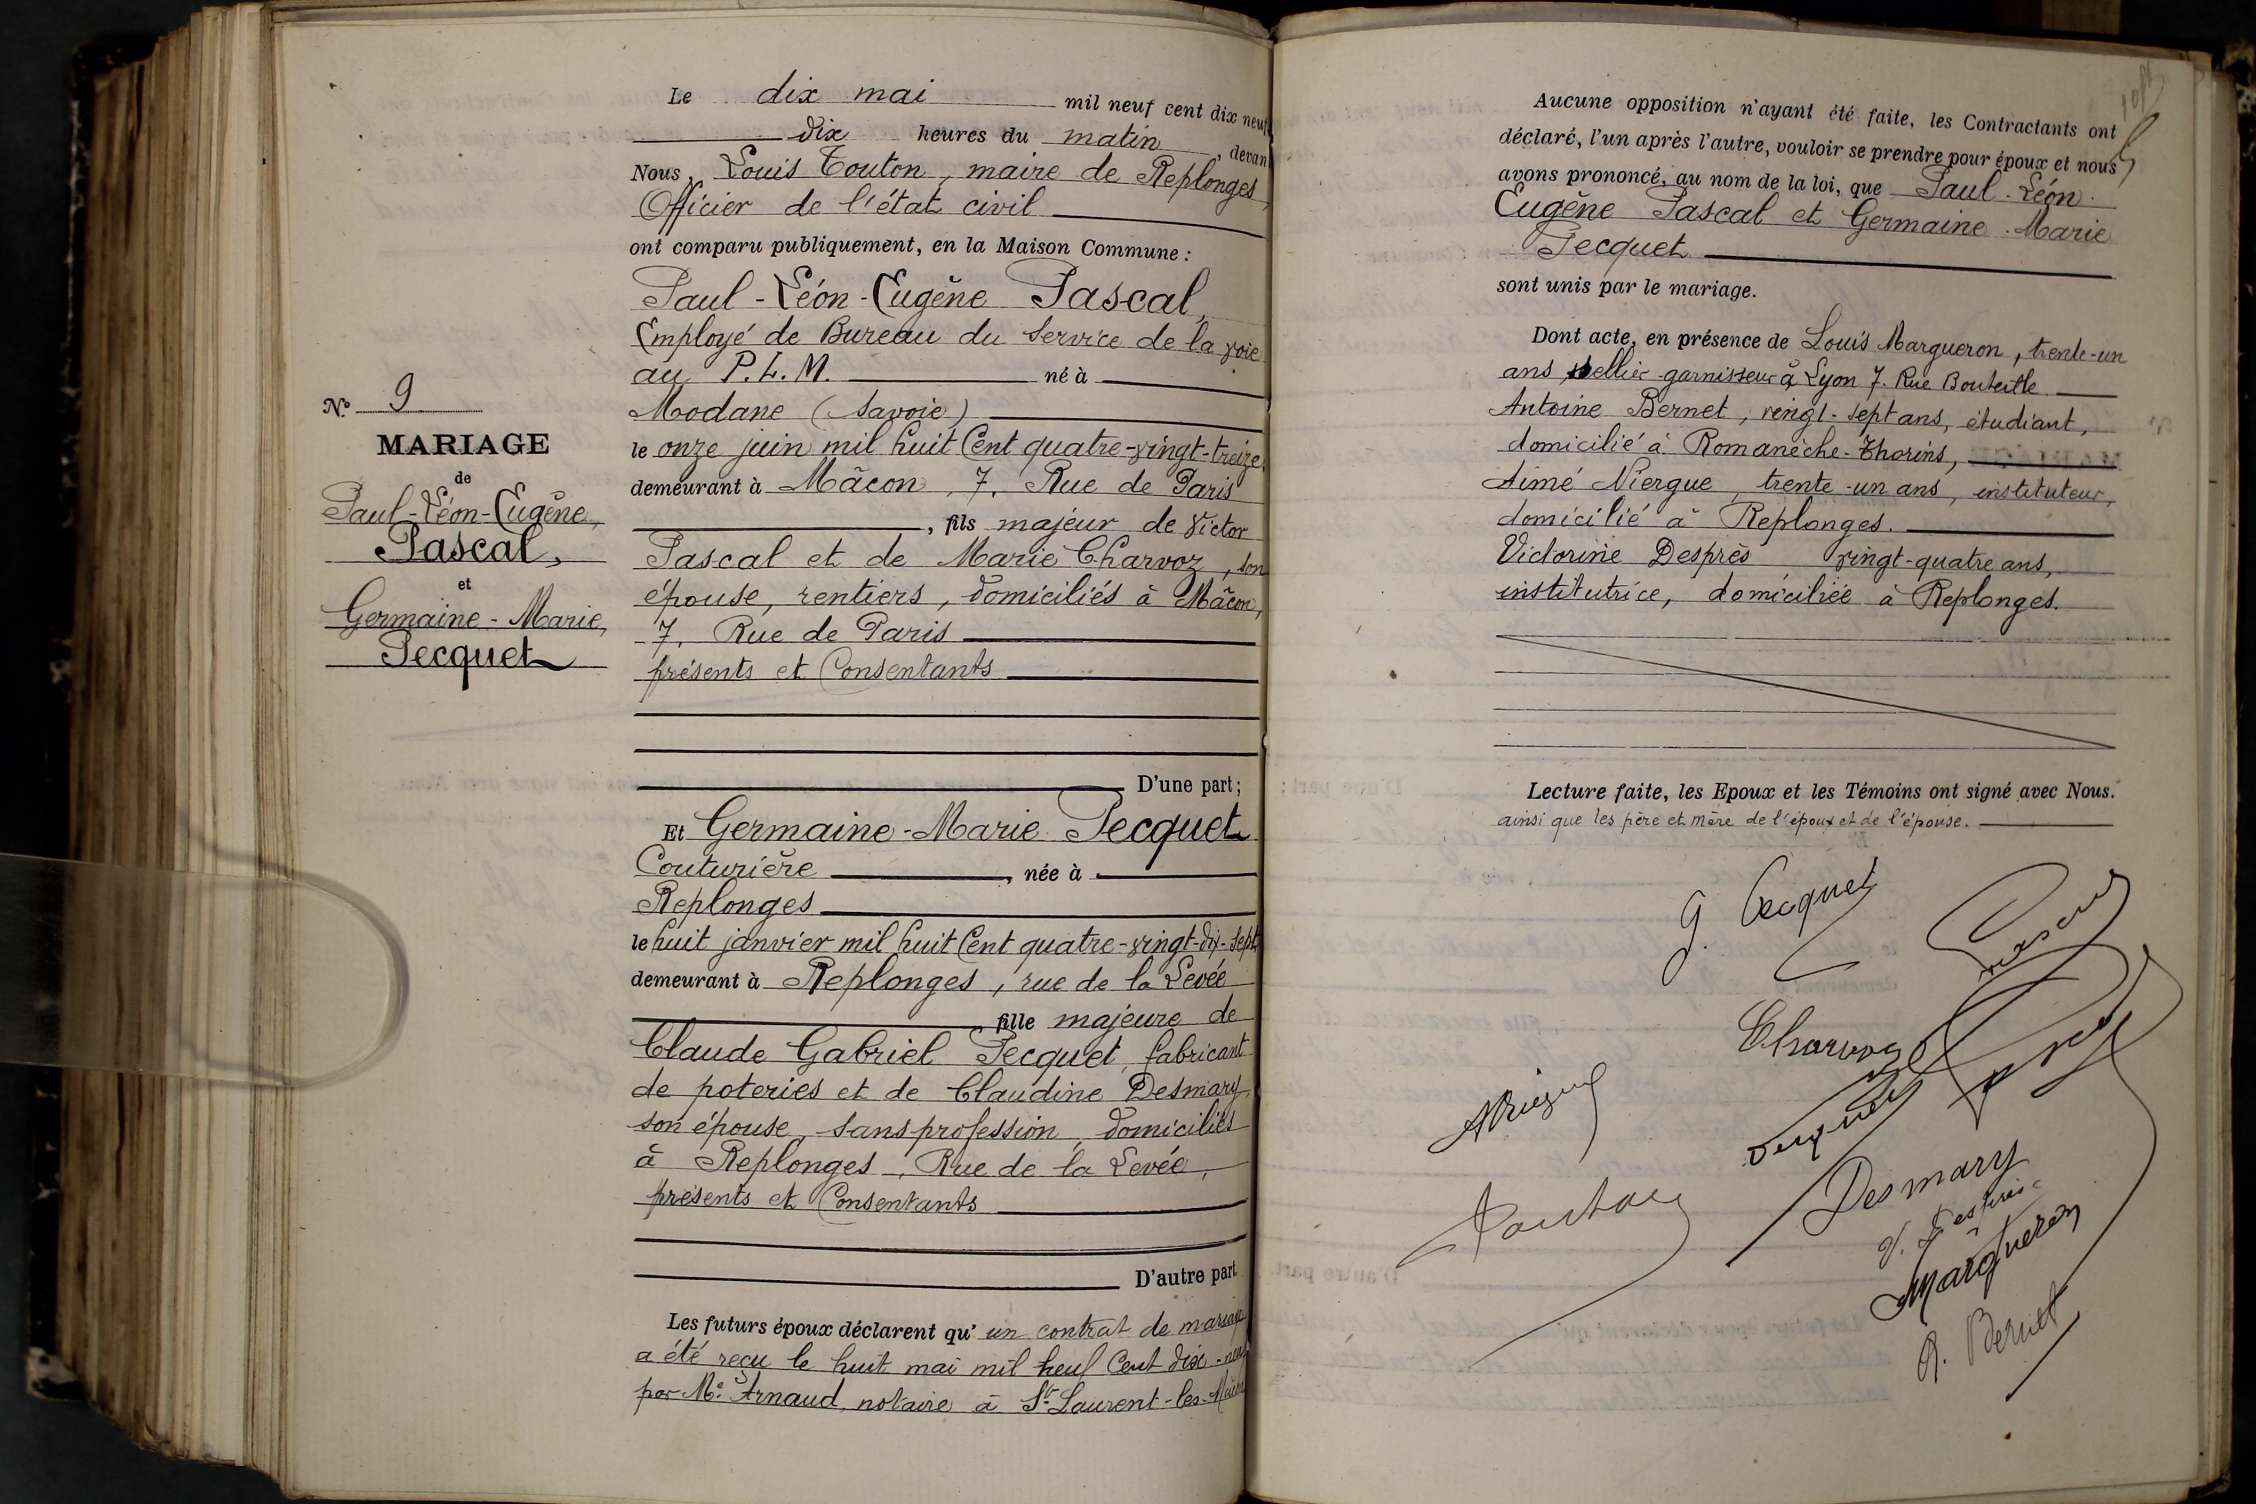 N.° 9
MARIAGE
de
Paul-Léon-Eugène,
Pascal,
et
Germaine-Marie,
Pecquet
Le dix mai mil neuf cent dix neuf
dix heures du matin, devan
Nous, Louis Touton, maire de Replonges,
Officier de l'état civil
ont comparu publiquement, en la Maison Commune :
Paul-Léon-Eugène Pascal,
Employé de Bureau du Service de la voie
au P.L.M. né à
Modane (Savoie)
le onze juin mil huit Cent quatre-vingt-treize
demeurant à Mâcon, 7, Rue de Paris
, fils majeur de Victor
Pascal et de Marie Charvoz, son
épouse, rentiers, domiciliés à Mâcon,
7, Rue de Paris
présents et Consentants
D'une part ;
Et Germaine-Marie Pecquet
Couturière, née à
Replonges
le huit janvier mil huit Cent quatre-vingt-dix-sept
demeurant à Replonges, rue de la Levée
fille majeure de
Claude Gabriel Pecquet, fabricant
de poteries et de Claudine Desmary
son épouse, sans profession, domiciliés
à Replonges, Rue de la Levée,
présents et Consentants
D'autre part
Les futurs époux déclarent qu' un contrat de mariage
a été reçu le huit mai mil neuf Cent dix-neuf
par Me. Arnaud, notaire à St-Laurent-les-Mâcon
Aucune opposition n'ayant été faite, les Contractants ont
déclaré, l'un après l'autre, vouloir se prendre pour époux et nous
avons prononcé, au nom de la loi, que Paul-Léon-
Eugène Pascal et Germaine-Marie
Pecquet
sont unis par le mariage.
Dont acte, en présence de Louis Margueron, trente-un
ans, sellier-garnisseur à Lyon 7. Rue Bouteille
Antoine Bernet, vingt-sept ans, étudiant,
domicilié à Romanèche-Thorins,
Aimé Niergue, trente-un ans, instituteur,
domicilié à Replonges.
Victorine Desprès vingt-quatre ans,
institutrice, domiciliée à Replonges.
Lecture faite, les Epoux et les Témoins ont signé avec Nous.
ainsi que les père et mère de l'époux et de l'épouse.
G. Pecquet
Pascal
Charvoz
ANiergue
Pecquet
Desmary
Touton
V. Desprès
Margueron
A. Bernet